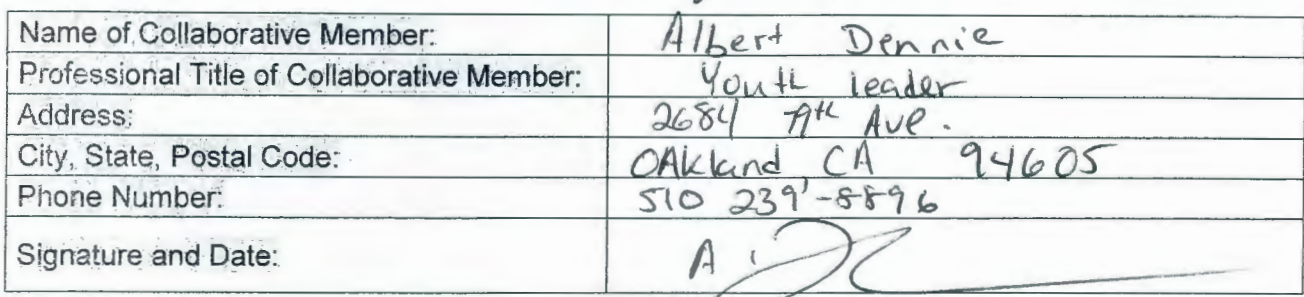 Name of Collaborative Member: Albert Dennie
Professional Title of Collaborative Member: Youth leader
Address: 2684 Ave.
City, State, Postal Code: OAkland, CA 94605
Phone Number: 510 239-8896
Signature and Date: A